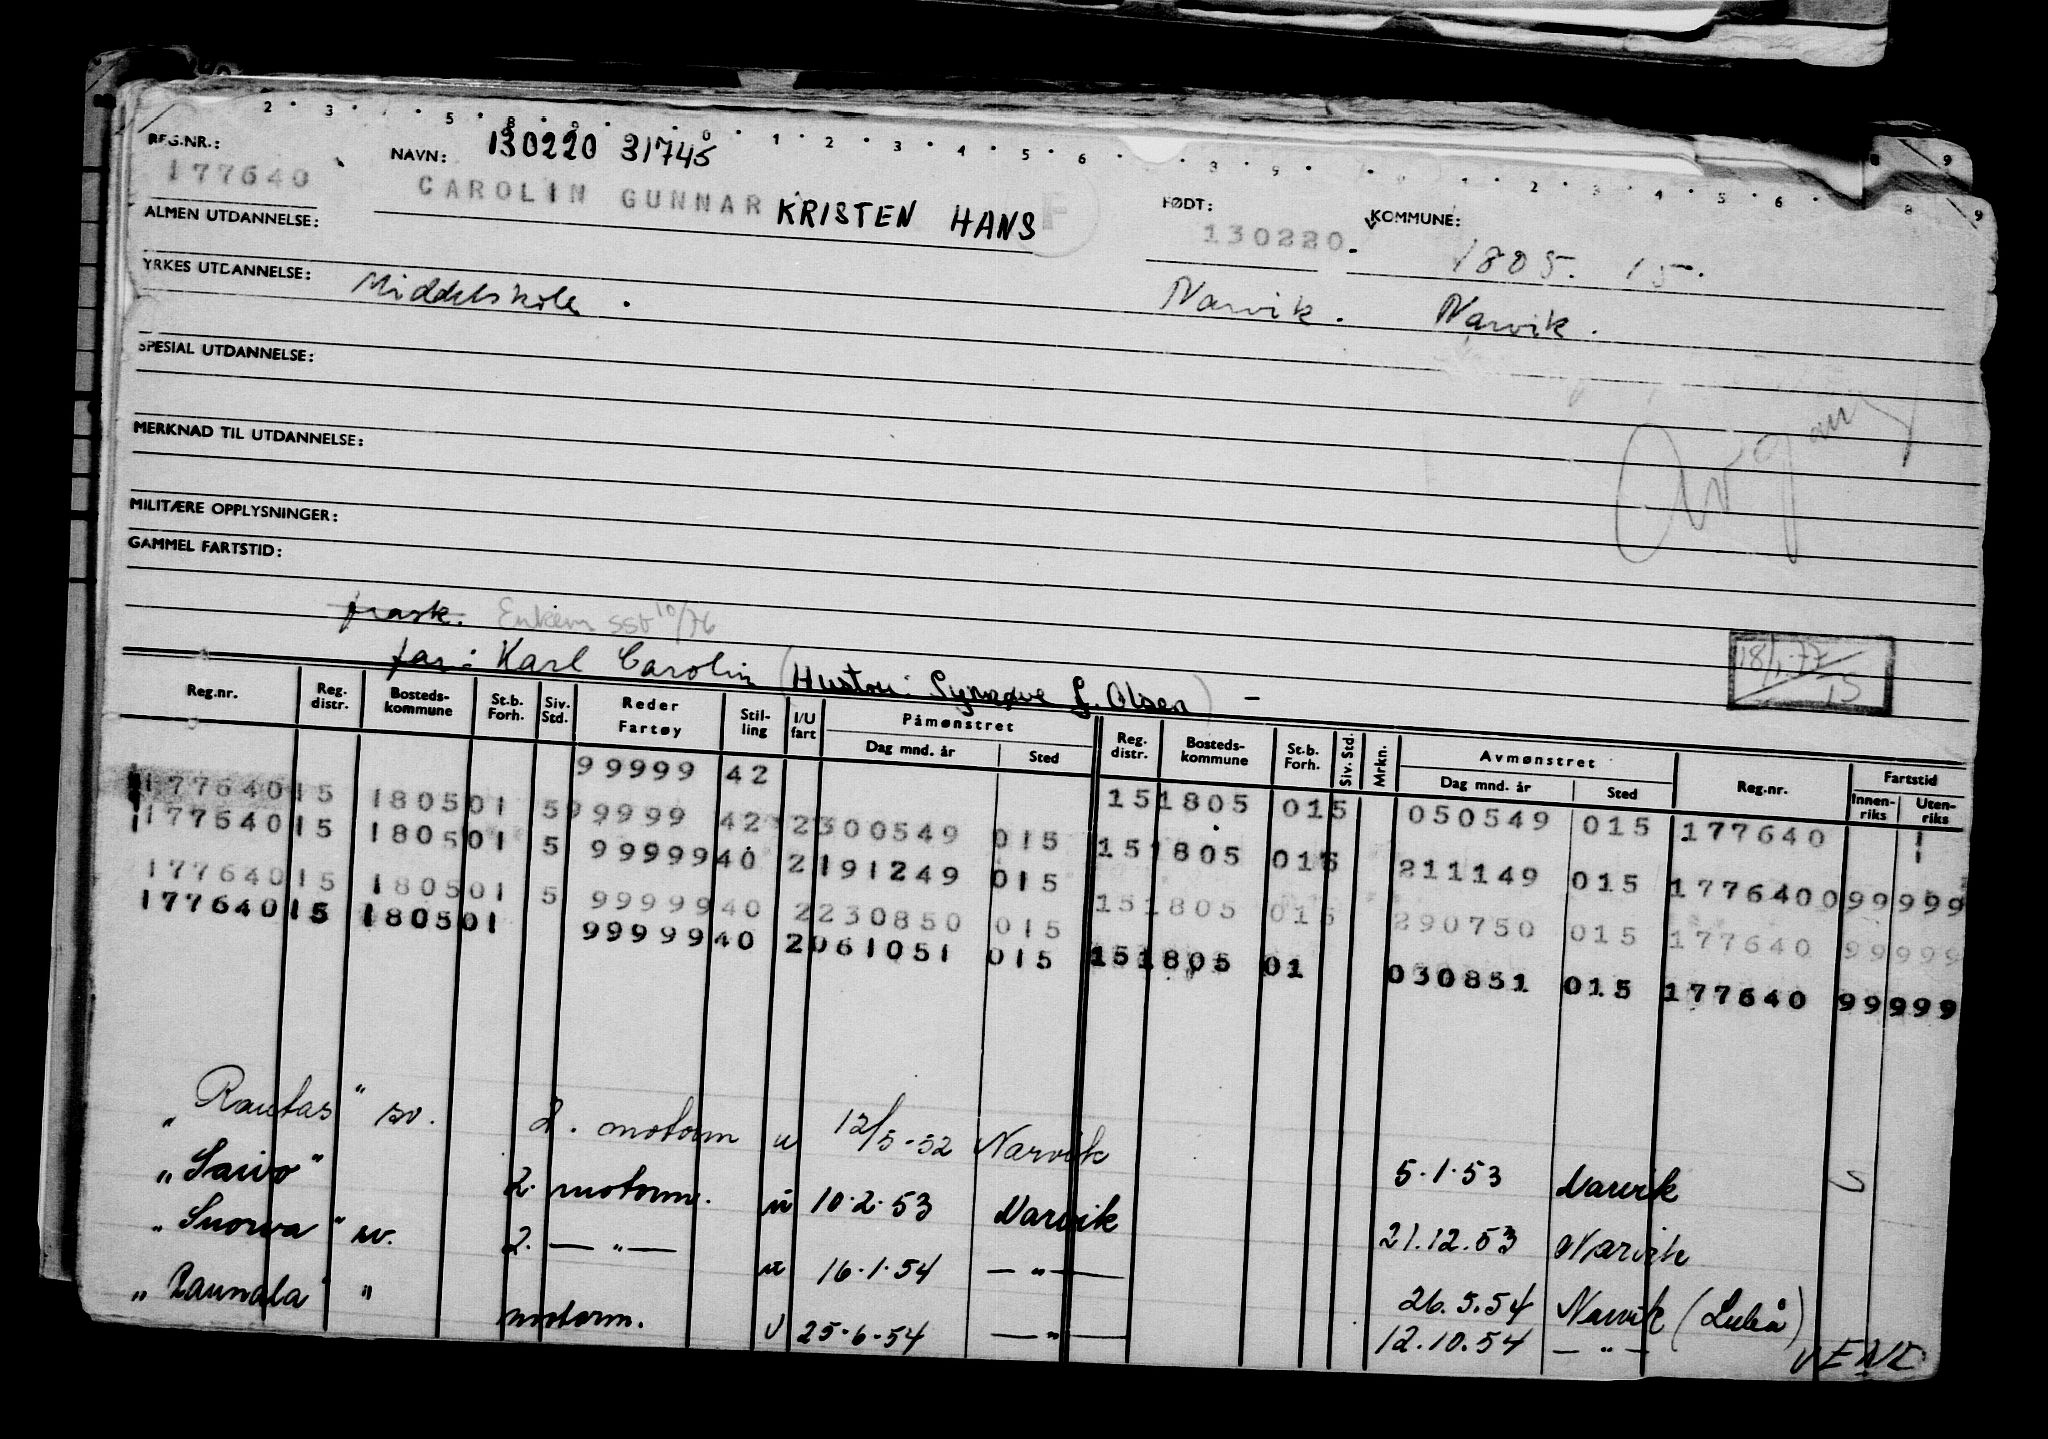 REG.NR.: NAVN: 130220 31745
177640 CAROLIN GUNNAR KRISTEN HANS F FØDT: 130220 KOMMUNE: 1805. 15.
ALMEN UTDANNELSE:
YRKES UTDANNELSE: Middelskole. Narvik. Narvik.
SPESIAL UTDANNELSE:
MERKNAD TIL UTDANNELSE:
MILITÆRE OPPLYSNINGER:
GAMMEL FARTSTID:
Enkem SSB 10/76
far: Karl Carolin (Hustru: Synnøve G. Olsen) -
18/1-77
15
Reg.nr. Reg. distr. Bosteds-kommune St.b. Forh. Siv. Std. Reder Fartøy Stil-ling I/U fart Påmønstret Dag mnd. år Sted Reg. distr. Bosteds-kommune St.b. Forh. Siv. Std. Mrkn. Avmønstret Dag mnd. år Sted Reg.nr. Fartstid Innen-riks Uten-riks
99999 42 151805 015 050549 015 177640 1
177640 15 180501 5 99999 42 2 300549 015 151805 015 211149 015 177640 0 99999
177640 15 180501 5 99999 40 2 191249 015 151805 015 290750 015 177640 99999
177640 15 180501 5 99999 40 2 230850 015 151805 01 030851 015 177640 99999
177640 15 180501 99999 40 2 061051 015
"Rautas" sv. 2. motorm u 12/5-52 Narvik 5.1.53 Narvik
"Saivo" 2. motorm. u 10.2.53 Narvik 21.12.53 Narvik
"Suorva" sv. 2. — " — u 16.1.54 — " — 26.5.54 Narvik (Luleå)
"Raunala" " motorm. u 25.6.54 — " — 12.10.54 — " —
VEND